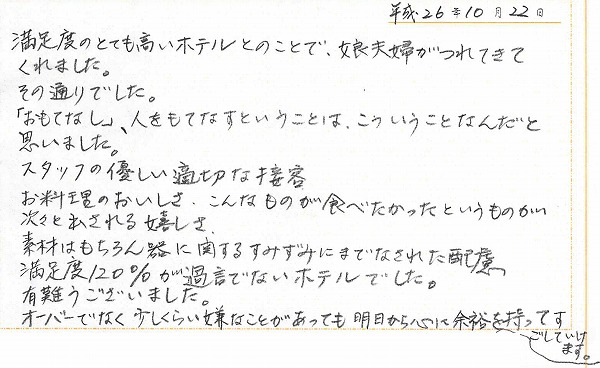 平成26年10月22日
満足度のとても高いホテルとのことで、娘夫婦がつれてきて
くれました。
その通りでした。
「おもてなし」、人をもてなすということは、こういうことなんだと
思いました。
スタッフの優しい適切な接客
お料理のおいしさ、こんなものが食べたかったというものが
次々と出される嬉しさ、
素材はもちろん器に関するすみずみにまでなされた配慮
満足度120%が過言でないホテルでした。
有難うございました。
オーバーでなく少しくらい嫌なことがあっても明日から心に余裕を持ってす
ごしていけ
ます。